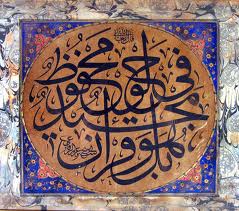 بل هو قرآن مجيد
في لوح محفوظ